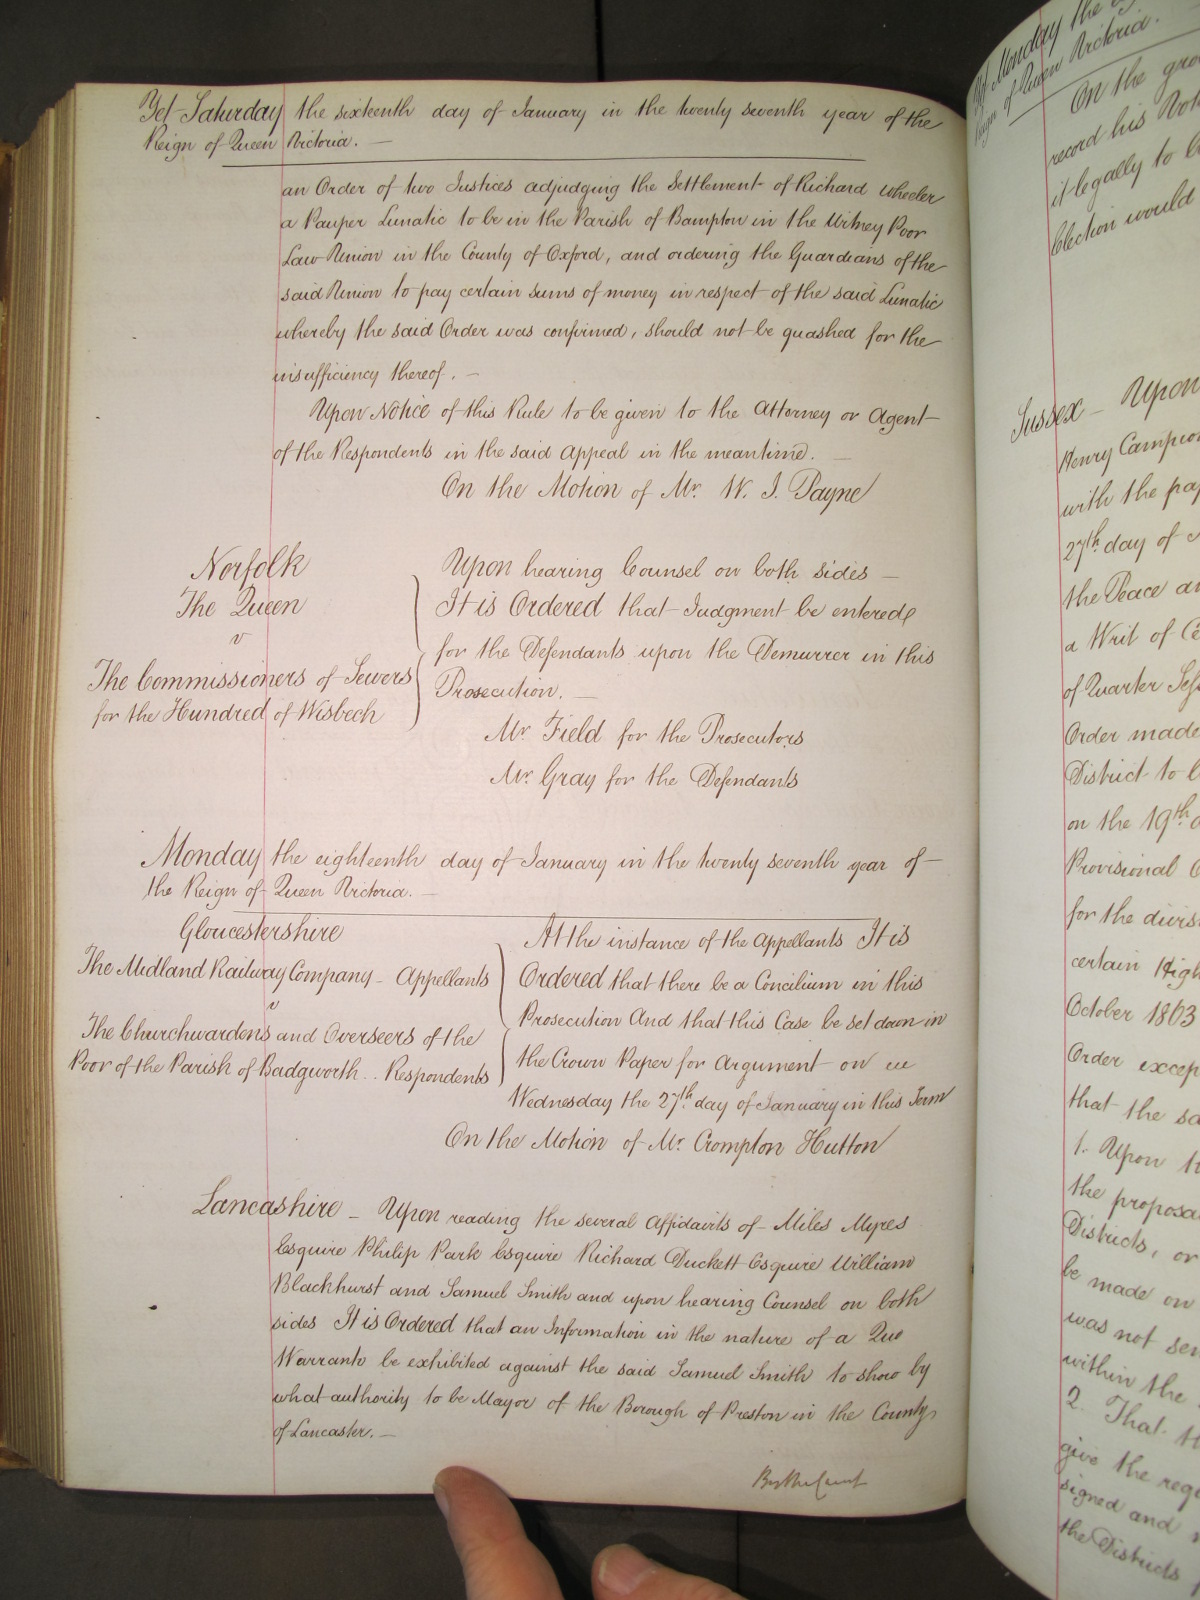 Yet Saturday the sixteenth day of January in the twenty seventh year of the
Reign of Queen Victoria. —
an Order of two Justices adjudging the Settlement of Richard Wheeler
a Pauper Lunatic to be in the Parish of Bampton in the Witney Poor
Law Union in the County of Oxford, and ordering the Guardians of the
said Union to pay certain sums of money in respect of the said Lunatic
whereby the said Order was confirmed, should not be quashed for the
insufficiency thereof. —
Upon Notice of this Rule to be given to the Attorney or Agent
of the Respondents in the said Appeal in the meantime. —
On the Motion of Mr. W. J. Payne
Norfolk
The Queen
v
The Commissioners of Sewers
for the Hundred of Wisbech
Upon hearing Counsel on both sides —
It is Ordered that Judgment be entered
for the Defendants upon the Demurrer in this
Prosecution. —
Mr. Field for the Prosecutors
Mr. Gray for the Defendants
Monday the eighteenth day of January in the twenty seventh year of
the Reign of Queen Victoria. —
Gloucestershire
The Midland Railway Company — Appellants
v
The Churchwardens and Overseers of the
Poor of the Parish of Badgworth .. Respondents
At the instance of the Appellants It is
Ordered that there be a Concilium in this
Prosecution And that this Case be set down in
the Crown Paper for Argument on
Wednesday the 27th day of January in this Term
On the Motion of Mr Crompton Hutton
Lancashire — Upon reading the several Affidavits of Miles Myres
Esquire Philip Park Esquire Richard Duckett Esquire William
Blackhurst and Samuel Smith and upon hearing Counsel on both
sides It is Ordered that an Information in the nature of a Quo
Warranto be exhibited against the said Samuel Smith to show by
what authority to be Mayor of the Borough of Preston in the County
of Lancaster. —
By the Court
Yet Monday the
Reign of Queen Victoria.
On the
record his
it legally to
Election would
Sussex — Upon
Henry Campion
with the
27th day of
the Peace
a Writ of
of Quarter
Order made
District to
on the 19th
Provisional
for the
certain
October 1863
Order
that the
1. Upon
the
Districts, or
be made on
was not
within the
2. That
give the
signed and
the Districts